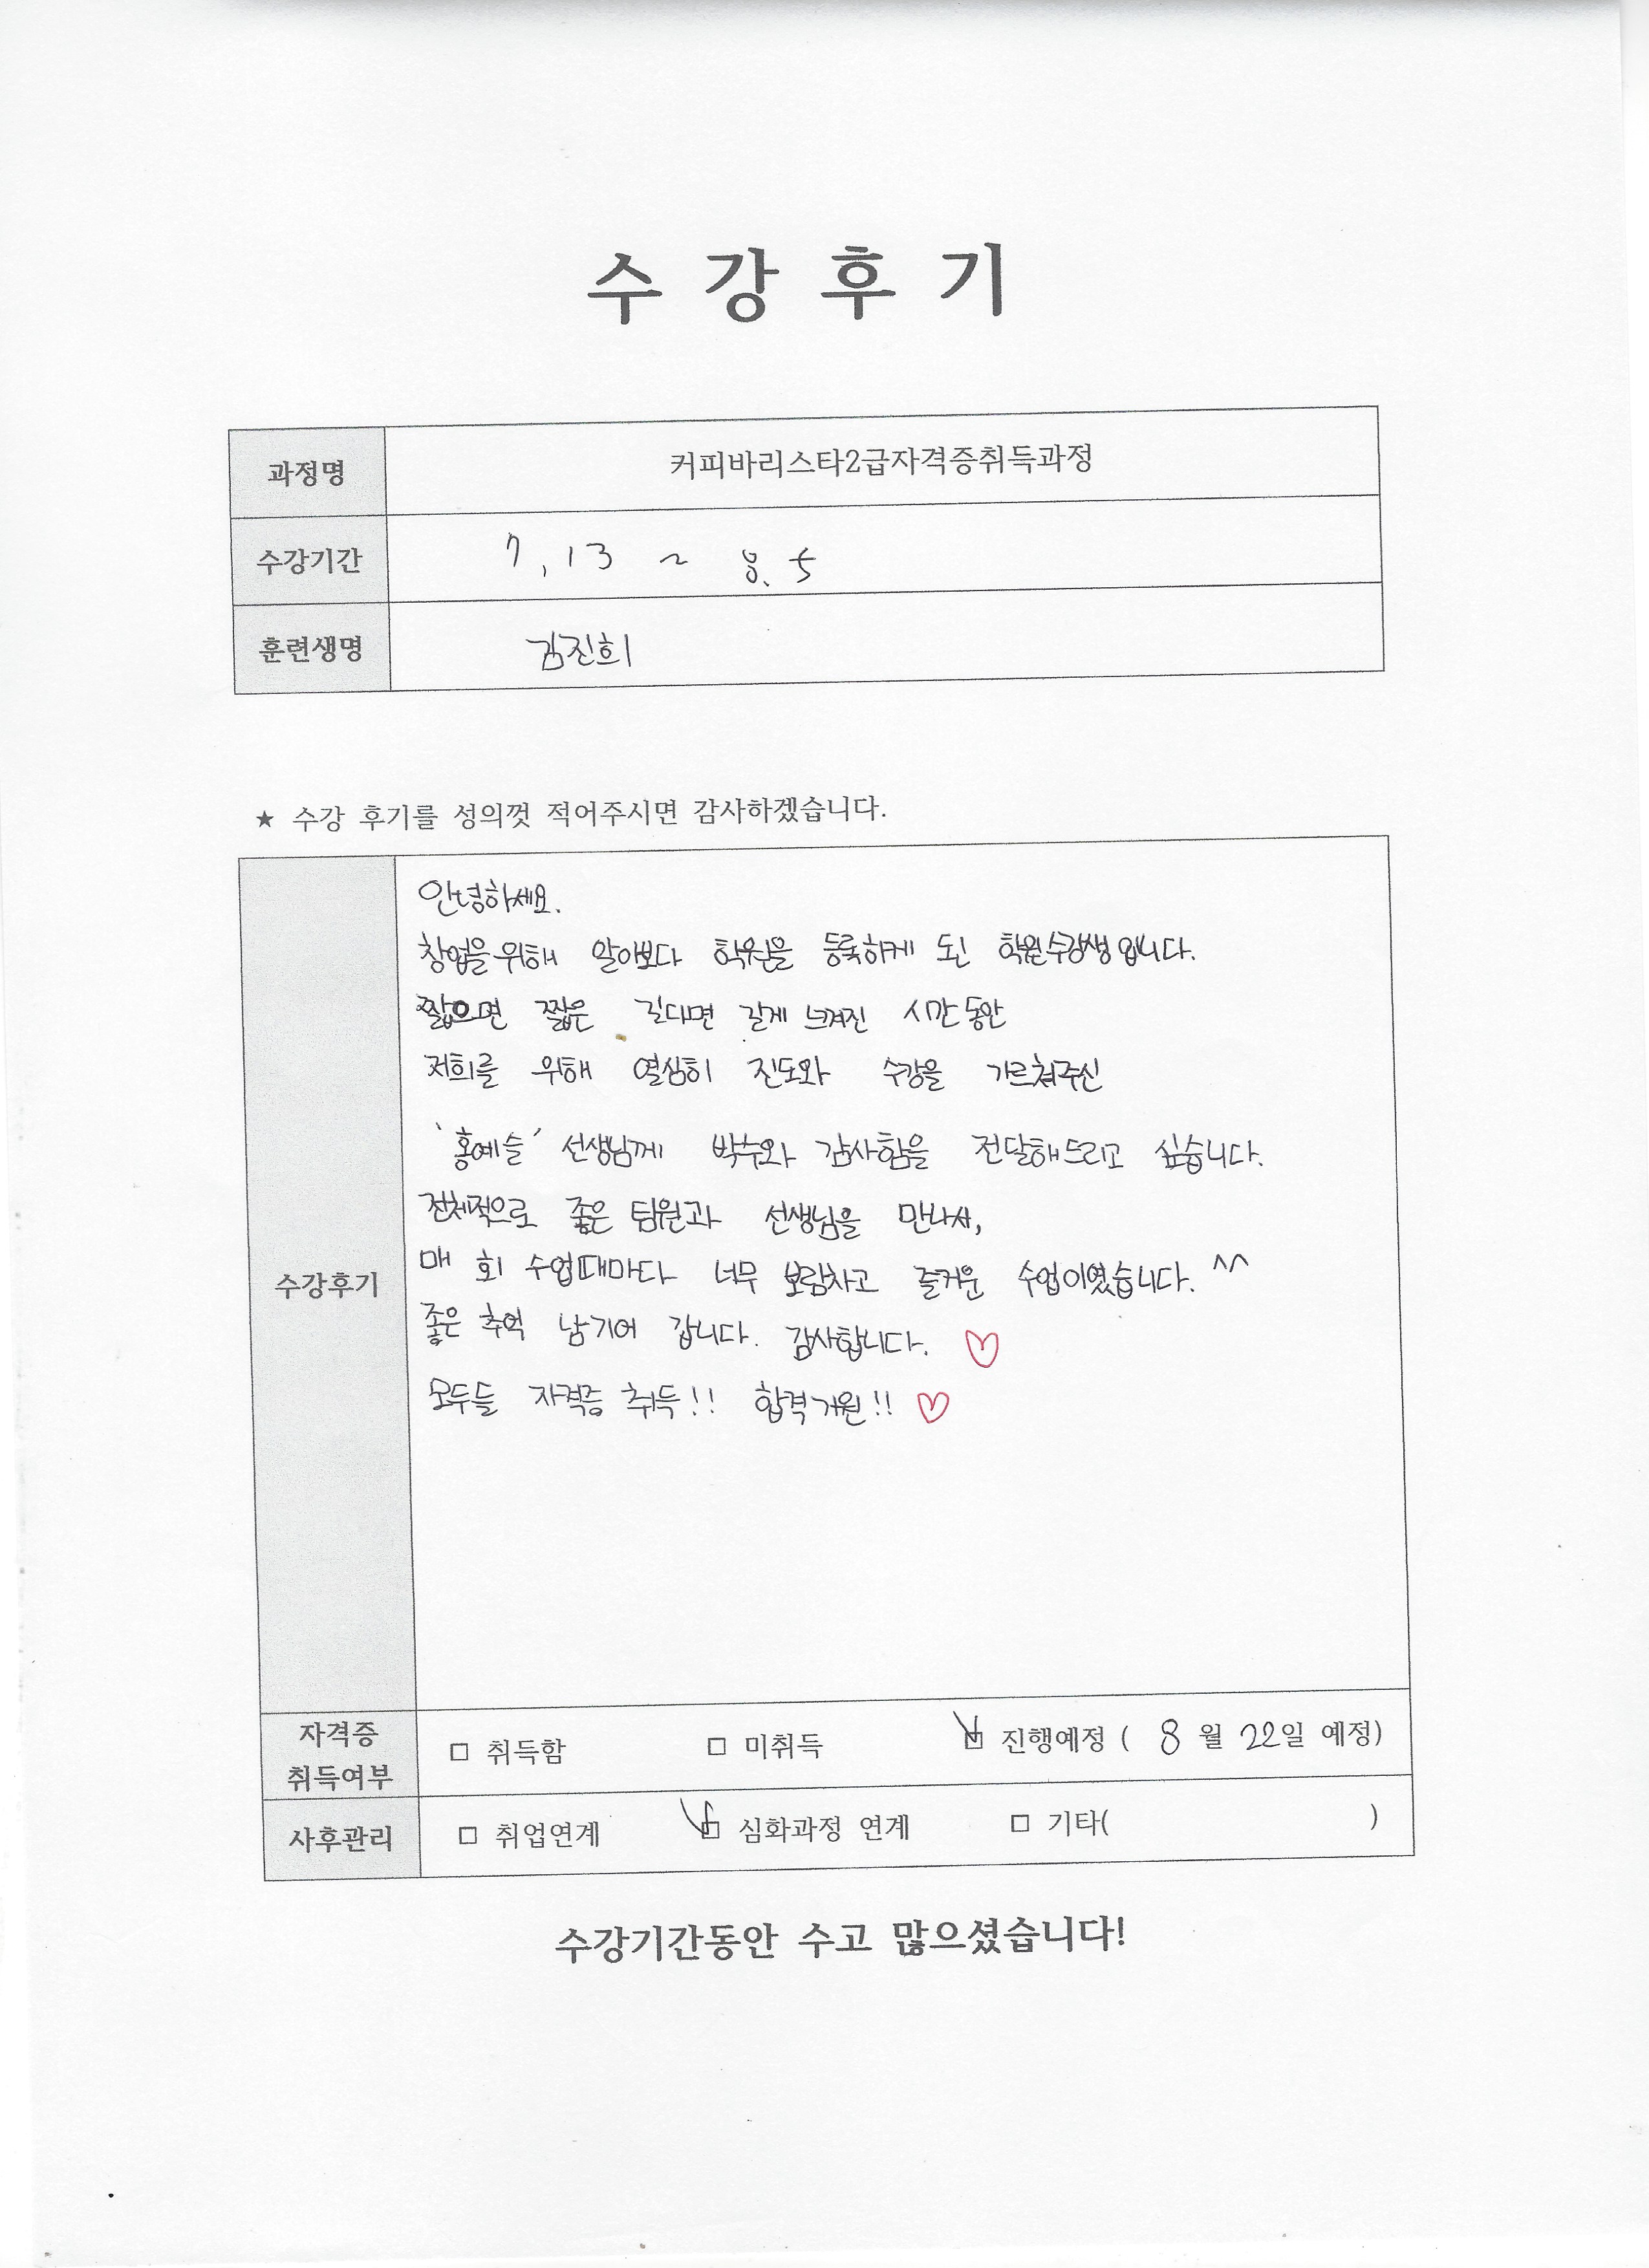 수 강 후 기
과정명 커피바리스타2급자격증취득과정
수강기간 7, 13 ~ 8. 5
훈련생명 김진희
★ 수강 후기를 성의껏 적어주시면 감사하겠습니다.
안녕하세요.
창업을 위해 알아보다 학원을 등록하게 된 학원수강생 입니다.
짧으면 짧은 길다면 길게 느껴진 시간 동안
저희를 위해 열심히 진도와 수강을 가르쳐주신
'홍예슬' 선생님께 박수와 감사함을 전달해드리고 싶습니다.
전체적으로 좋은 팀원과 선생님을 만나서,
매 회 수업때마다 너무 보람차고 즐거운 수업이였습니다. ^^
수강후기
좋은 추억 남기어 갑니다. 감사합니다. ♡
모두들 자격증 취득!! 합격기원!! ♡
자격증 취득여부 □ 취득함 □ 미취득 ☑ 진행예정 ( 8 월 22일 예정)
사후관리 □ 취업연계 ☑ 심화과정 연계 □ 기타( )
수강기간동안 수고 많으셨습니다!